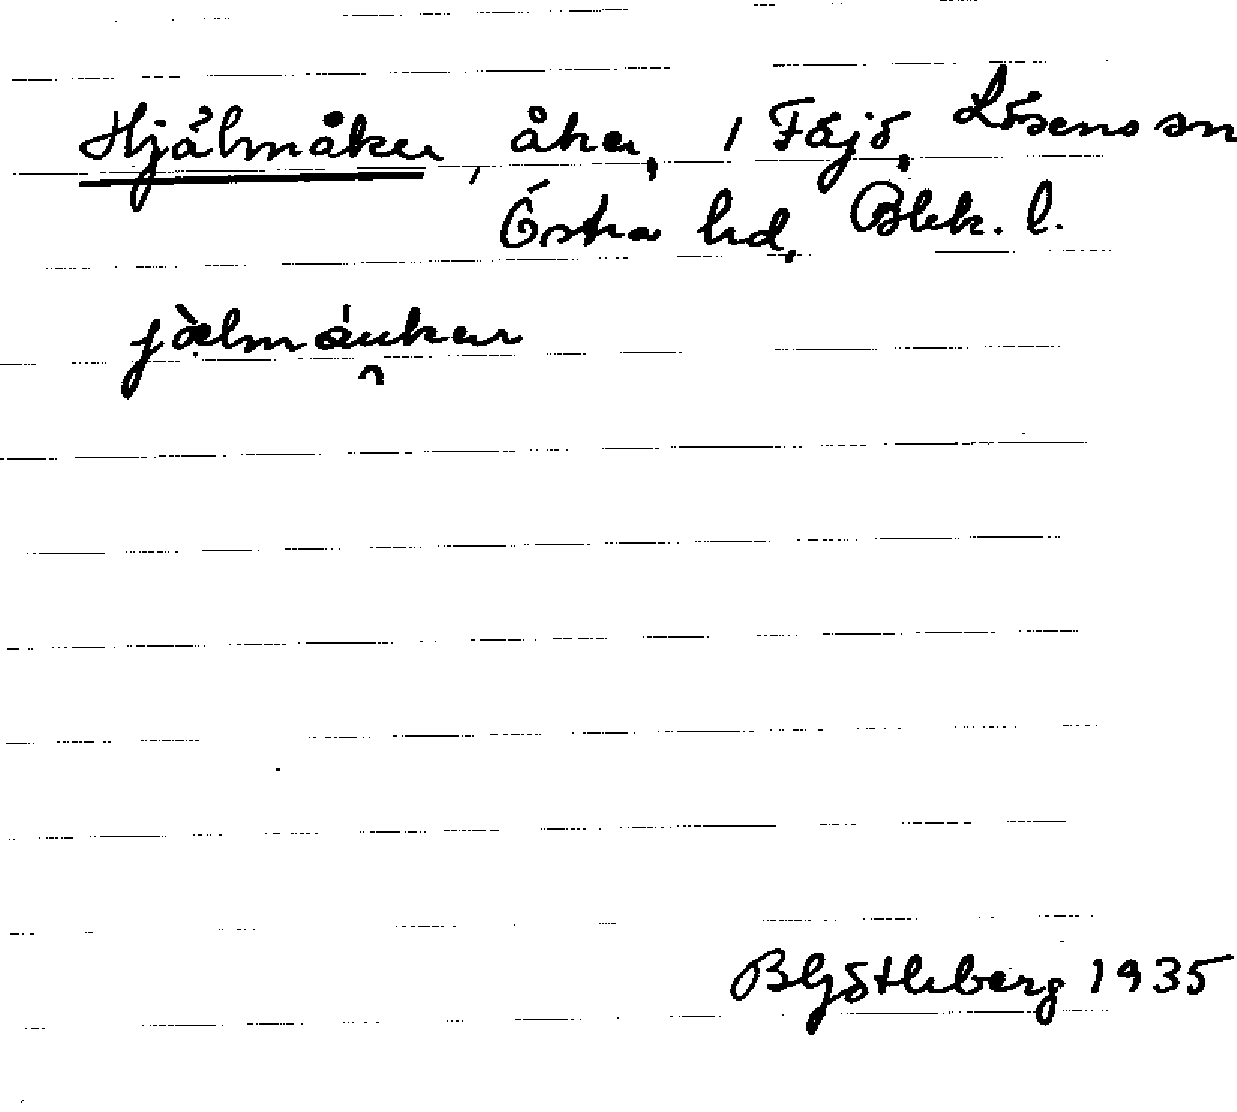 Hjälmåker, åker, i Fäjö, Lösens sn
Östra hd, Blek. l.
jàlmáukar
B Götlleberg 1935